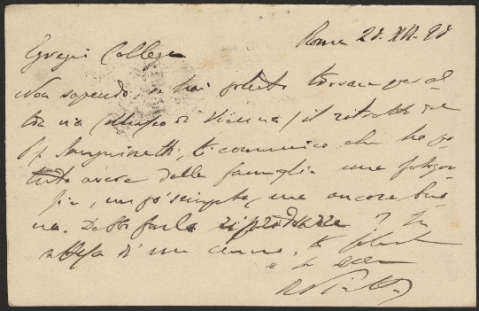 Roma 28. XII. 98
Egregio Collega
Non sapendo se hai potuto trovare per al
tra via (Museo di Vienna) il ritratto del
P. Sanguinetti, ti comunico che ho po
tuto avere dalla famiglia una fotogra
fia, un po' sempre, ma ancora buo
na. Debbo farla riprodurre? In
attesa di un cenno, ti saluto